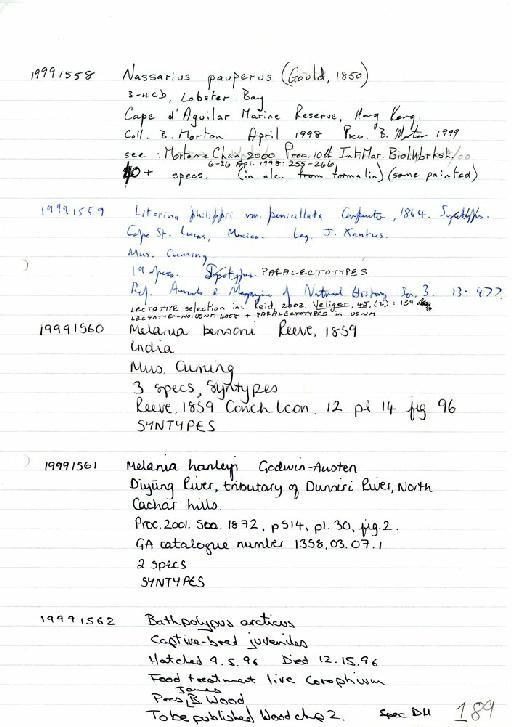 19991558 Nassarius pauperus (Gould, 1850)
Lobster Bay
Cape d'Aguilar Marine Reserve, Hong Kong
Coll. B. Morton April 1998 Pres. B. Morton 1999
see: Morton & Chan, 2000 Proc. 10th Int. Mar. Biol. Workshop
6-26 Apr. 1998: 255-266
10+ specs. (in alc. from formalin) (some painted)
19991559 Litorina philippii var. penicillata Carpenter, 1864. Syntypes.
Cape St. Lucas, Mexico. Leg. J. Xantus.
Mus. Cuming
19 specs. PARALECTOTYPES
Ref. Annals & Magazine of Natural History Ser. 3. 13: 477
LECTOTYPE selection in: Reid, 2002. Veliger,
PARALECTOTYPES in USNM
19991560 Melania bensoni Reeve, 1859
India
Mus. Cuming
3 specs, Syntypes
Reeve, 1859 Conch. Icon. 12 pl 14 fig 96
SYNTYPES
19991561 Melania hanleyi Godwin-Austen
Diyung River, tributary of River, North
Cachar hills.
Proc. Zool. Soc. 1872, p514, pl. 30, fig. 2.
GA catalogue number 1358, 03.07.1
2 specs
SYNTYPES
19991562 Bathpolypus arcticus
Captive-bred juveniles
Hatched 9.5.96 Died 12.15.96
Food treatment live Corophium
James
Pres. B. Wood
To be published Wood chp 2. Spec BH
189